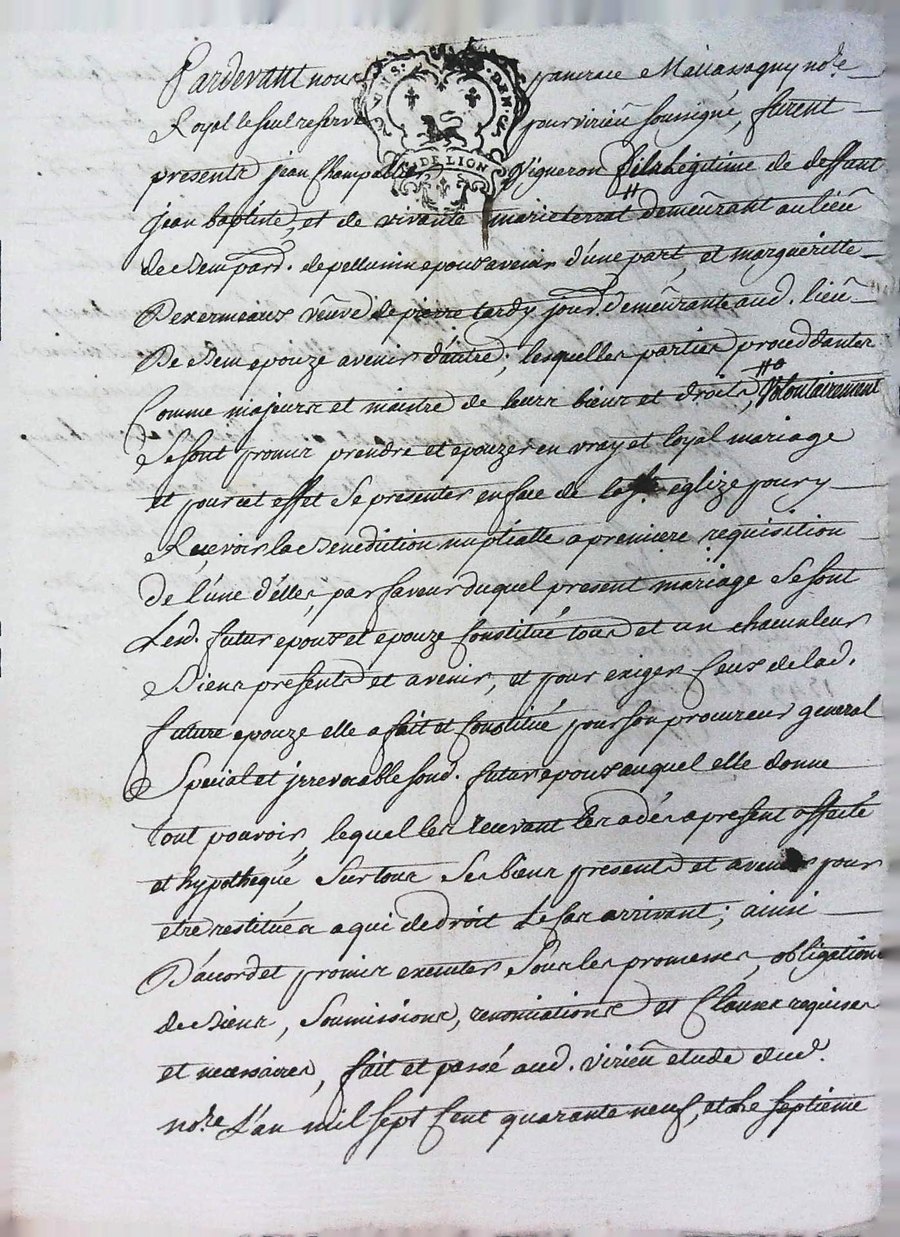 Pardevant nous pancrace nore
Royal le seul reservé pour virieu soussigné, furent
GNS. DENC
G. DE LION
presents jean Champallier Vigneron fils legitime de deffunt
jean baptiste, et de vivante marie terrat demeurant au lieu
de Bem parr. de pellussin epoux avenir d'une part, et margueritte
Dexermeaux veuve de pierre tardy jour. demeurante aud. lieu
De Bem epouze avenir d'autre; lesquelles parties proceddantes
Comme majeurs et maitre de leurs biens et droits, Volontairement
Se sont promis prendre et epouzer en vray et loyal mariage
et pour cet effet se presenter en face de la ste eglize pour y
Recevoir la Benediction nuptialle a premiere requisition
de l'une d'elles, par faveur duquel present mariage Se sont
Lesd. futur epoux et epouze Constitué tous et un chacun leurs
Biens presents et avenir, et pour exiger Ceux de lad.
future epouze elle a fait et Constitué pour son procureur general
Special et irrevocable sond. futur epoux auquel elle donne
tout pouvoir, lequel les recevant les a dés apresent affecté
et hypothequé Sur tous Ses biens presents et avenir pour
etre restitués a qui de droit Le cas arrivant; ainsi
D'acord et promis executer Sous les promesses, obligations
de Biens, Soumissions, renonciations et Clauses requises
et necessaires, fait et passé aud. virieu etude dud.
nore L'an mil sept Cent quarante neuf, et le septieme